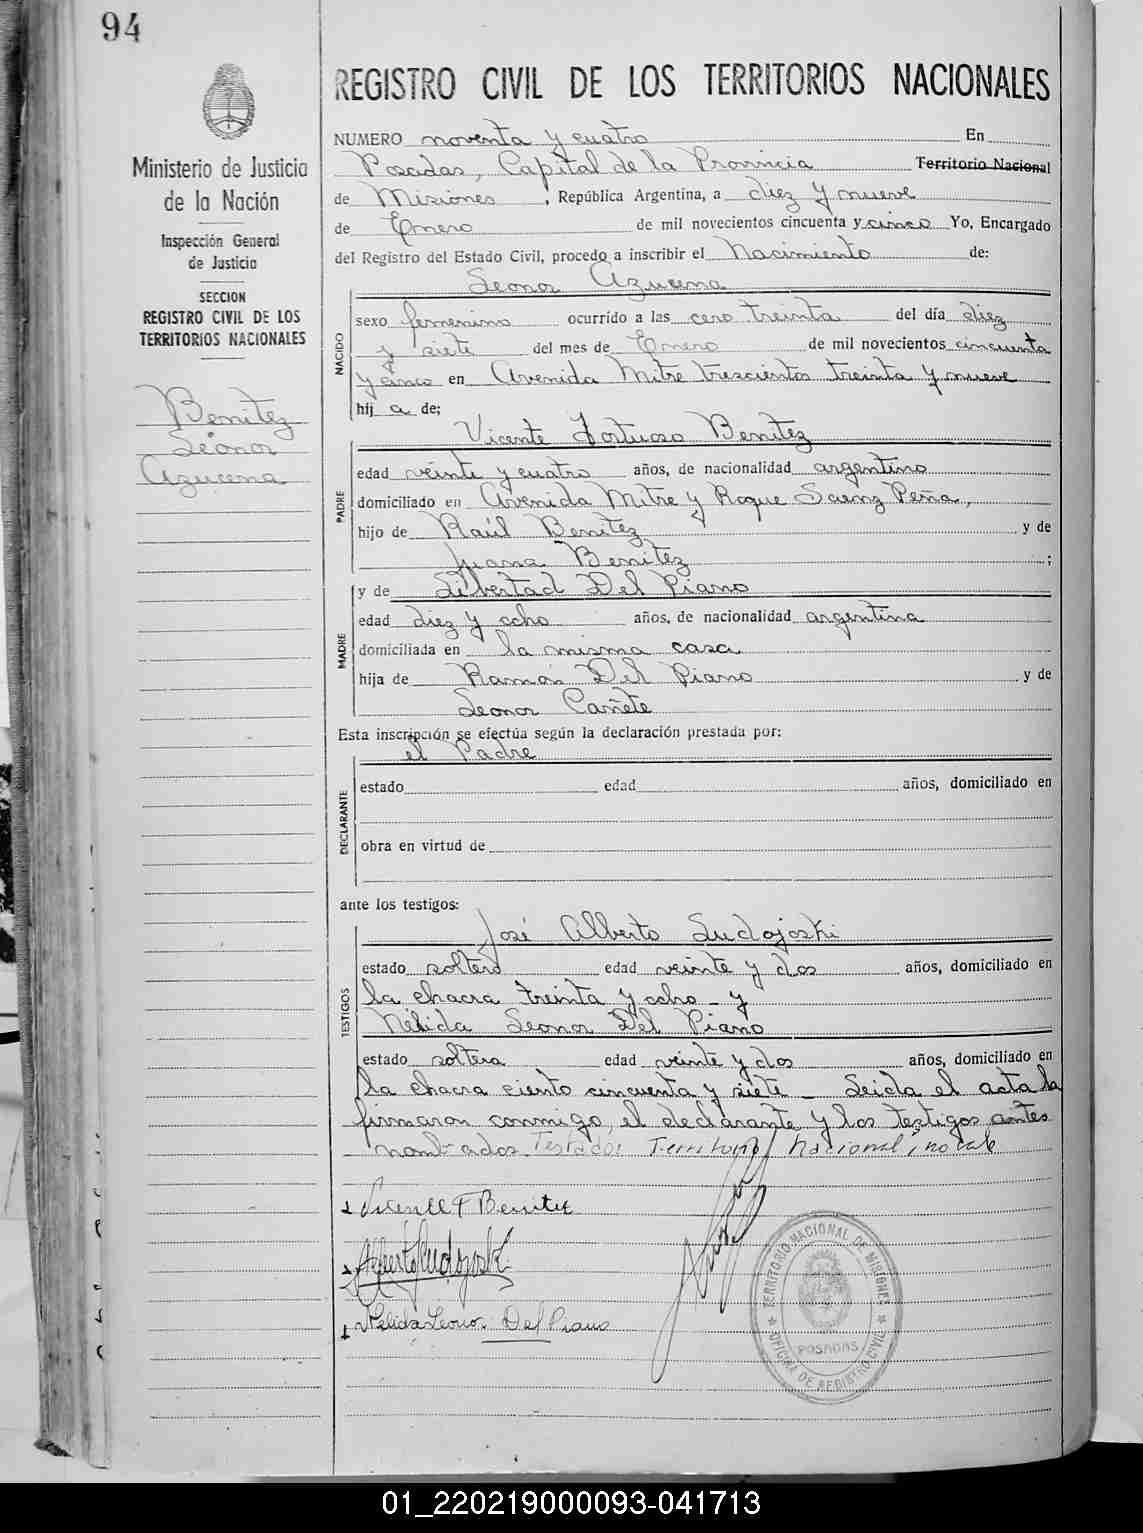 94
REGISTRO CIVIL DE LOS TERRITORIOS NACIONALES
Ministerio de Justicia
de la Nación
Inspección General
de Justicia
SECCION
REGISTRO CIVIL DE LOS
TERRITORIOS NACIONALES
Benitez
Leonor
Azucena
NUMERO noventa y cuatro En
Posadas, Capital de la Provincia Territorio Nacional
de Misiones, República Argentina, a diez y nueve
de Enero de mil novecientos cincuenta y cinco Yo, Encargado
del Registro del Estado Civil, procedo a inscribir el Nacimiento de:
Leonor Azucena
NACIDO
sexo femenino ocurrido a las cero treinta del día diez
y siete del mes de Enero de mil novecientos cincuenta
y cinco en Avenida Mitre trescientos treinta y nueve
hij a de;
Vicente Fortuoso Benitez
PADRE
edad veinte y cuatro años, de nacionalidad argentino
domiciliado en Avenida Mitre y Roque Saenz Peña,
hijo de Raúl Benitez y de
Juana Benitez ;
y de Libertad Del Piano
MADRE
edad diez y ocho años, de nacionalidad argentina
domiciliada en la misma casa
hija de Ramón Del Piano y de
Leonor Cañete
Esta inscripción se efectúa según la declaración prestada por:
el Padre
DECLARANTE
estado edad años, domiciliado en
obra en virtud de
ante los testigos:
José Alberto Sudojoski
TESTIGOS
estado soltero edad veinte y dos años, domiciliado en
la chacra treinta y ocho - y
Nélida Leonor Del Piano
estado soltera edad veinte y dos años, domiciliado en
la chacra ciento cincuenta y siete - Leida el acta la
firmaron conmigo, el declarante y los testigos antes
nombrados. Testado: Territorio Nacional; no vale
Vicente F Benitez
Alberto Sudojoski
Nelida Leonor Del Piano
TERRITORIO NACIONAL DE MISIONES
POSADAS
OFICINA DE REGISTRO CIVIL
01_220219000093-041713